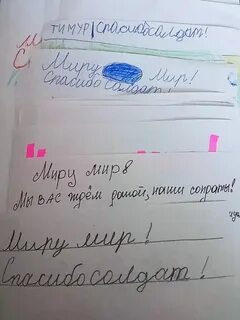 ТИМУР Спасибо солдат!
Миру Мир!
Спасибо солдат!
Миру мир8
Мы вас ждём домой, наши солдаты!
Миру мир!
Спасибо солдат!